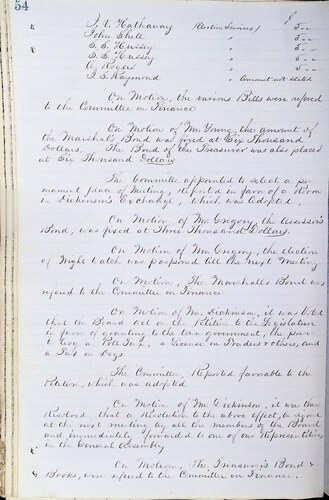 54
J. V. Hathaway (Election Services) $ 5 — —
John Shell " 5 — —
S. S. Hussey " 5 — —
S. S. Hussey " 5 — —
5 — —
J. S. Raymond " Amount not stated
On Motion, the various Bills were referred
to the Committee on Finance.
On Motion of Mr Young, the amount of
the Marshal's Bond was fixed at Six Thousand
Dollars, The Bond of the Treasurer was also placed
at Six Thousand Dollars
The Committee appointed to select a per-
manent place of Meeting, Reported in favor of a Room
in Dickinson's Exchange, which was Adopted.
On Motion of Mr. Gregory, the Assessor's
Bond, was fixed at Three Thousand Dollars.
On Motion of Mr. Gregory, the election
of Night Watch was postponed till the next Meeting
On Motion, The Marshall's Bond was
referred to the Committee on Finance
On Motion of Mr. Dickinson, it was Voted
that the Board act on the Petition to the Legislature
in favor of granting to the town government, the power
to levy a Poll Tax, a License on Traders & others, and
a Tax on Dogs
The Committee, Reported favorable to the
Petition, which was adopted
On Motion of Mr Dickinson, it was then
Resolved that a Resolution to the above effect, be signed
at the next meeting by all the members of the Board
and immediately forwarded to one of our Representatives
in the General Assembly
On Motion, The Treasury's Bond &
Books, were referred to the Committee on Finance.